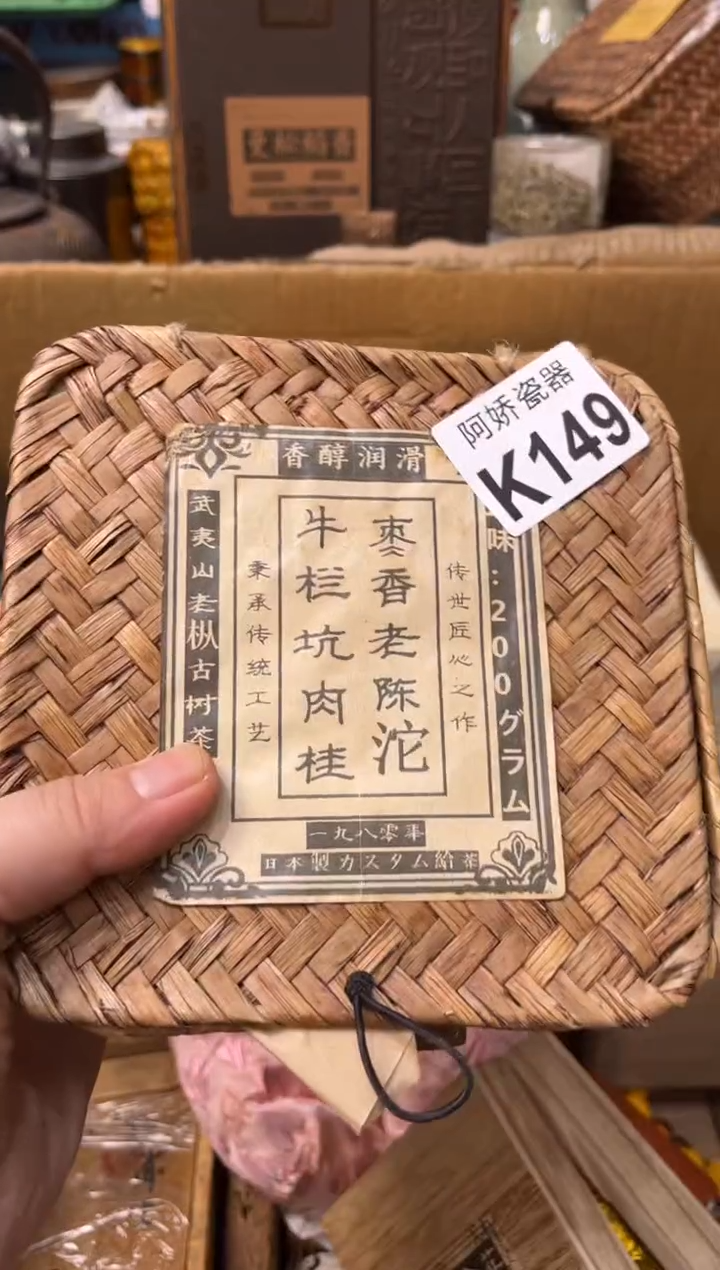 阿娇瓷器
K149
香醇润滑
味:200グラム
传世匠心之作
枣香老陈沱
牛栏坑肉桂
秉承传统工艺
武夷山老枞古树茶
一九八零年
日本製カスタム給茶